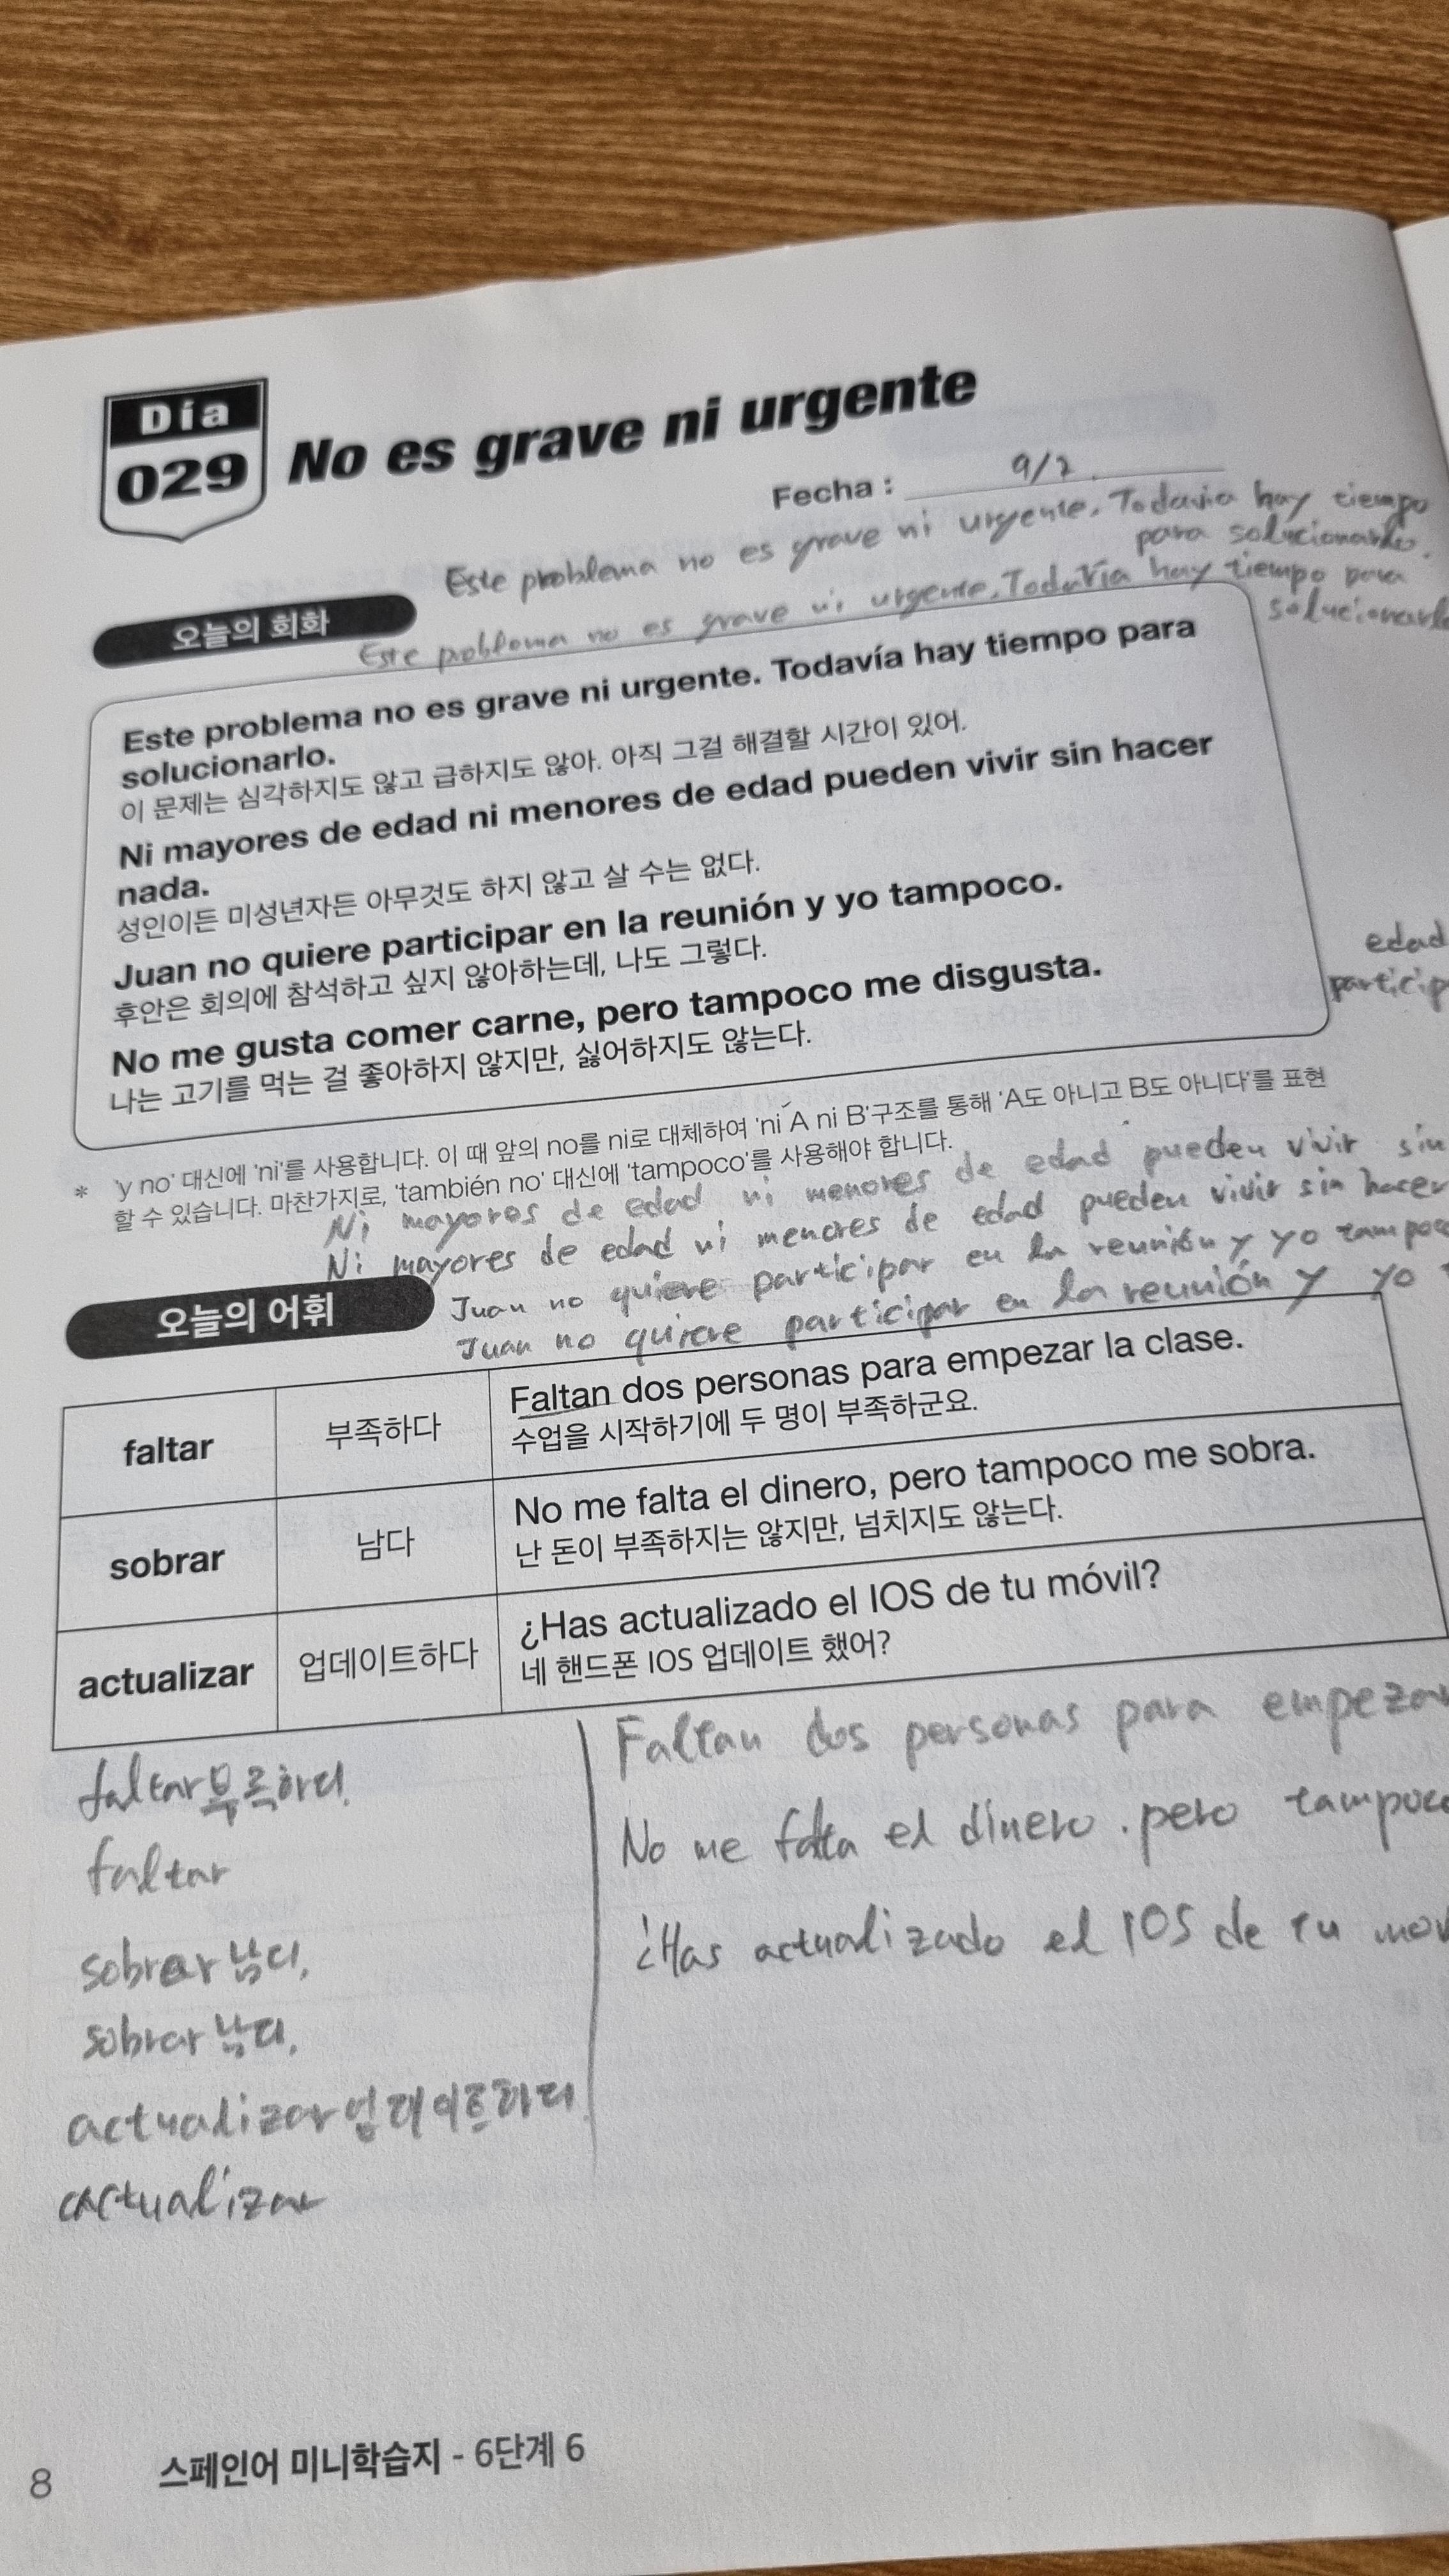 Día
029
No es grave ni urgente
Fecha : 9/2.
Este problema no es grave ni urgente, Todavia hay tiempo
para solucionarlo.
오늘의 회화
Este problema no es grave ni urgente, Todavía hay tiempo para
solucionarlo
Este problema no es grave ni urgente. Todavía hay tiempo para
solucionarlo.
이 문제는 심각하지도 않고 급하지도 않아. 아직 그걸 해결할 시간이 있어.
Ni mayores de edad ni menores de edad pueden vivir sin hacer
nada.
성인이든 미성년자든 아무것도 하지 않고 살 수는 없다.
Juan no quiere participar en la reunión y yo tampoco.
후안은 회의에 참석하고 싶지 않아하는데, 나도 그렇다.
No me gusta comer carne, pero tampoco me disgusta.
나는 고기를 먹는 걸 좋아하지 않지만, 싫어하지도 않는다.
edad
particip
* 'y no' 대신에 'ni'를 사용합니다. 이 때 앞의 no를 ni로 대체하여 'ni A ni B'구조를 통해 'A도 아니고 B도 아니다'를 표현
할 수 있습니다. 마찬가지로, 'también no' 대신에 'tampoco'를 사용해야 합니다.
Ni mayores de edad ni menores de edad pueden vivir sin
Ni mayores de edad ni menores de edad pueden vivir sin hacer
Juan no quiere participar en la reunión y yo tampoco
Juan no quiere participar en la reunión y yo
오늘의 어휘
faltar 부족하다 Faltan dos personas para empezar la clase.
수업을 시작하기에 두 명이 부족하군요.
sobrar 남다 No me falta el dinero, pero tampoco me sobra.
난 돈이 부족하지는 않지만, 넘치지도 않는다.
actualizar 업데이트하다 ¿Has actualizado el IOS de tu móvil?
네 핸드폰 IOS 업데이트 했어?
faltar 부족하다.
faltar
sobrar 남다.
sobrar 남다.
actualizar 업데이트하다.
actualizar
Faltan dos personas para empezar
No me falta el dinero . pero tampoco
¿Has actualizado el IOS de tu mov
8 스페인어 미니학습지 - 6단계 6